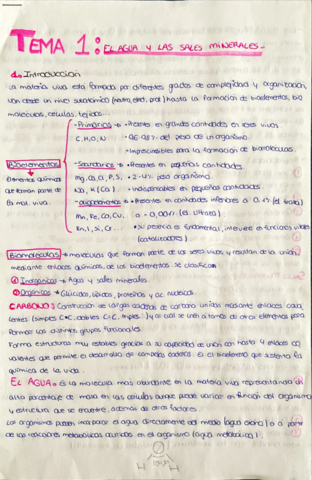 TEMA 1: EL AGUA Y LAS SALES MINERALES.
1. Introducción
La materia viva está formada por diferentes grados de complejidad y organización,
van desde un nivel subatómico (neutro, electr, prot) hasta la formación de bioelementos, bio
moléculas, células, tejidos...
- Primarios → • Presentes en grandes cantidades en seres vivos
C, H, O, N. • 96'98% del peso de un organismo.
• Imprescindibles para la formación de biomoléculas.
Bioelementos
Elementos químicos
que forman parte de
la mat. viva.
- Secundarios → • Presentes en pequeñas cantidades.
Mg, Ca, P, S, • 2-4% peso organismo.
Na, K (Ca) • Indispensables en pequeñas cantidades.
- Oligoelementos → • Presentes en cantidades inferiores a 0.1% (el total)
Mn, Fe, Co, Cu, 0 - 0,001% (los ultras).
Zn, I, Si, Cr... • Su presencia es fundamental, interviene en funciones vitales
(catalizadores)
Biomoléculas → moléculas que forman parte de los seres vivos y resultan de la unión
mediante enlaces químicos de los bioelementos. Se clasifican
Inorgánicas → Agua y sales minerales
Orgánicas → Glúcidos, lípidos, proteínas y ác. nucleicos
CARBONO: Construcción de largas cadenas de carbono unidas mediante enlaces cova
lentes (simples C-C, dobles C=C, triples) y al cual se unen átomos de otros elementos para
formar los distintos grupos funcionales.
Forma estructuras muy estables gracias a su capacidad de unión con hasta 4 enlaces co
valentes que permite el desarrollo de complejas cadenas. Es el bioelemento que sustenta la
química de la vida.
EL AGUA: Es la molécula más abundante en la materia viva representando un
alto porcentaje de masa en las células aunque puede variar en función del organismo
y estructura que se encuentre, además de otros factores.
Los organismos pueden incorporar el agua directamente del medio (agua exóna) o a partir
de las reacciones metabólicas ocurridas en el organismo (agua metabólica).